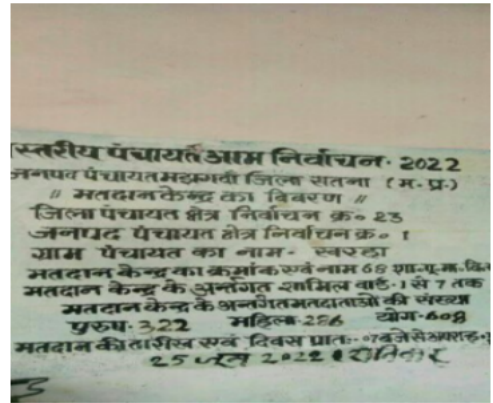 स्तरीय पंचायत आम निर्वाचन. 2022
जनपद पंचायत मझगवां जिला सतना (म.प्र.)
॥ मतदान केन्द्र का विवरण ॥
जिला पंचायत क्षेत्र निर्वाचन क्र० 23
जनपद पंचायत क्षेत्र निर्वाचन क्र० 1
ग्राम पंचायत का नाम-
मतदान केन्द्र का क्रमांक एवं नाम 68 शा.
मतदान केन्द्र के अंतर्गत शामिल वार्ड-1 से 7 तक
मतदान केन्द्र के अन्तर्गत मतदाताओं की संख्या
पुरुष-322 महिला-286 योग-608
मतदान की तारीख एवं दिवस प्रातः-07 बजे से अपराह्न
25 जून 2022